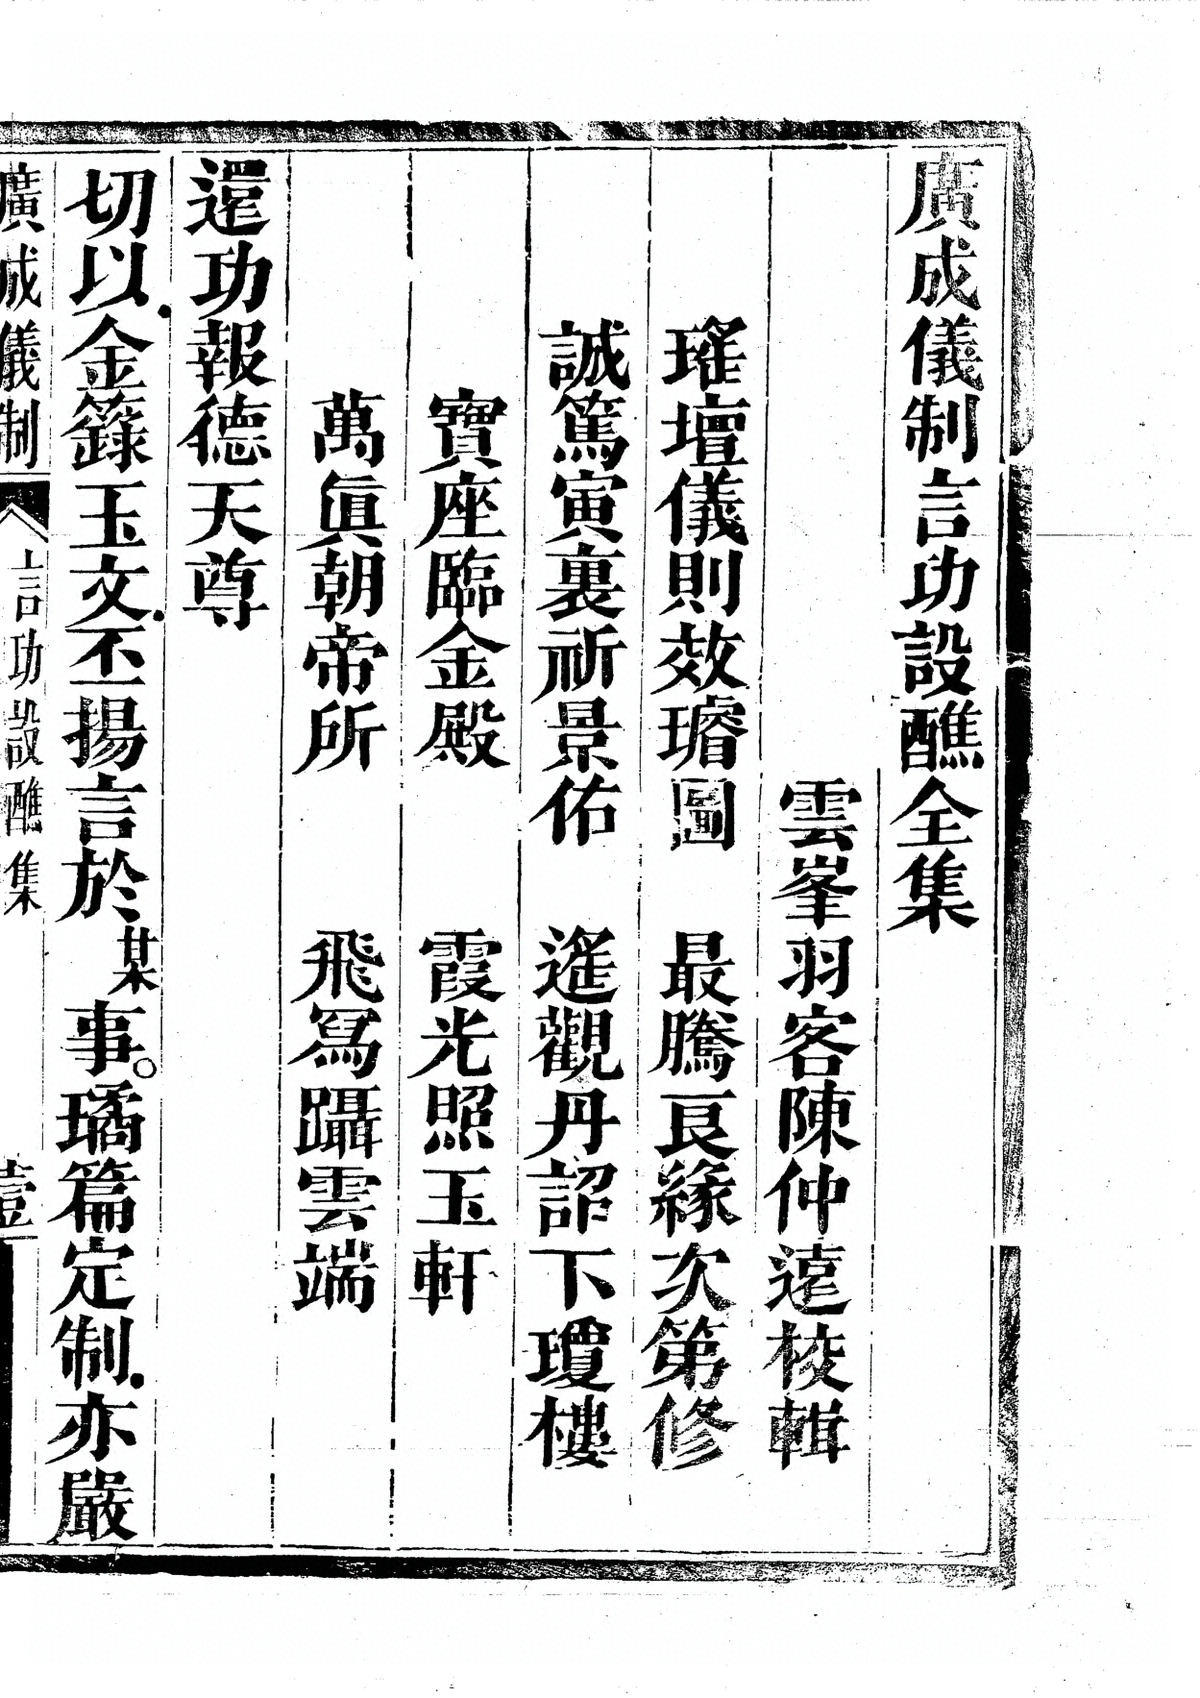 廣成儀制言功設醮全集
雲峯羽客陳仲遠校輯
瑤壇儀則效璿圖　最騰良緣次第修
誠篤寅裏祈景佑　遙觀丹詔下瓊樓
寶座臨金殿　霞光照玉軒
萬眞朝帝所　飛舄躡雲端
還功報德天尊
切以．金籙玉文．丕揚言於某事。璚篇定制．亦嚴
廣成儀制　言功設醮集　壹